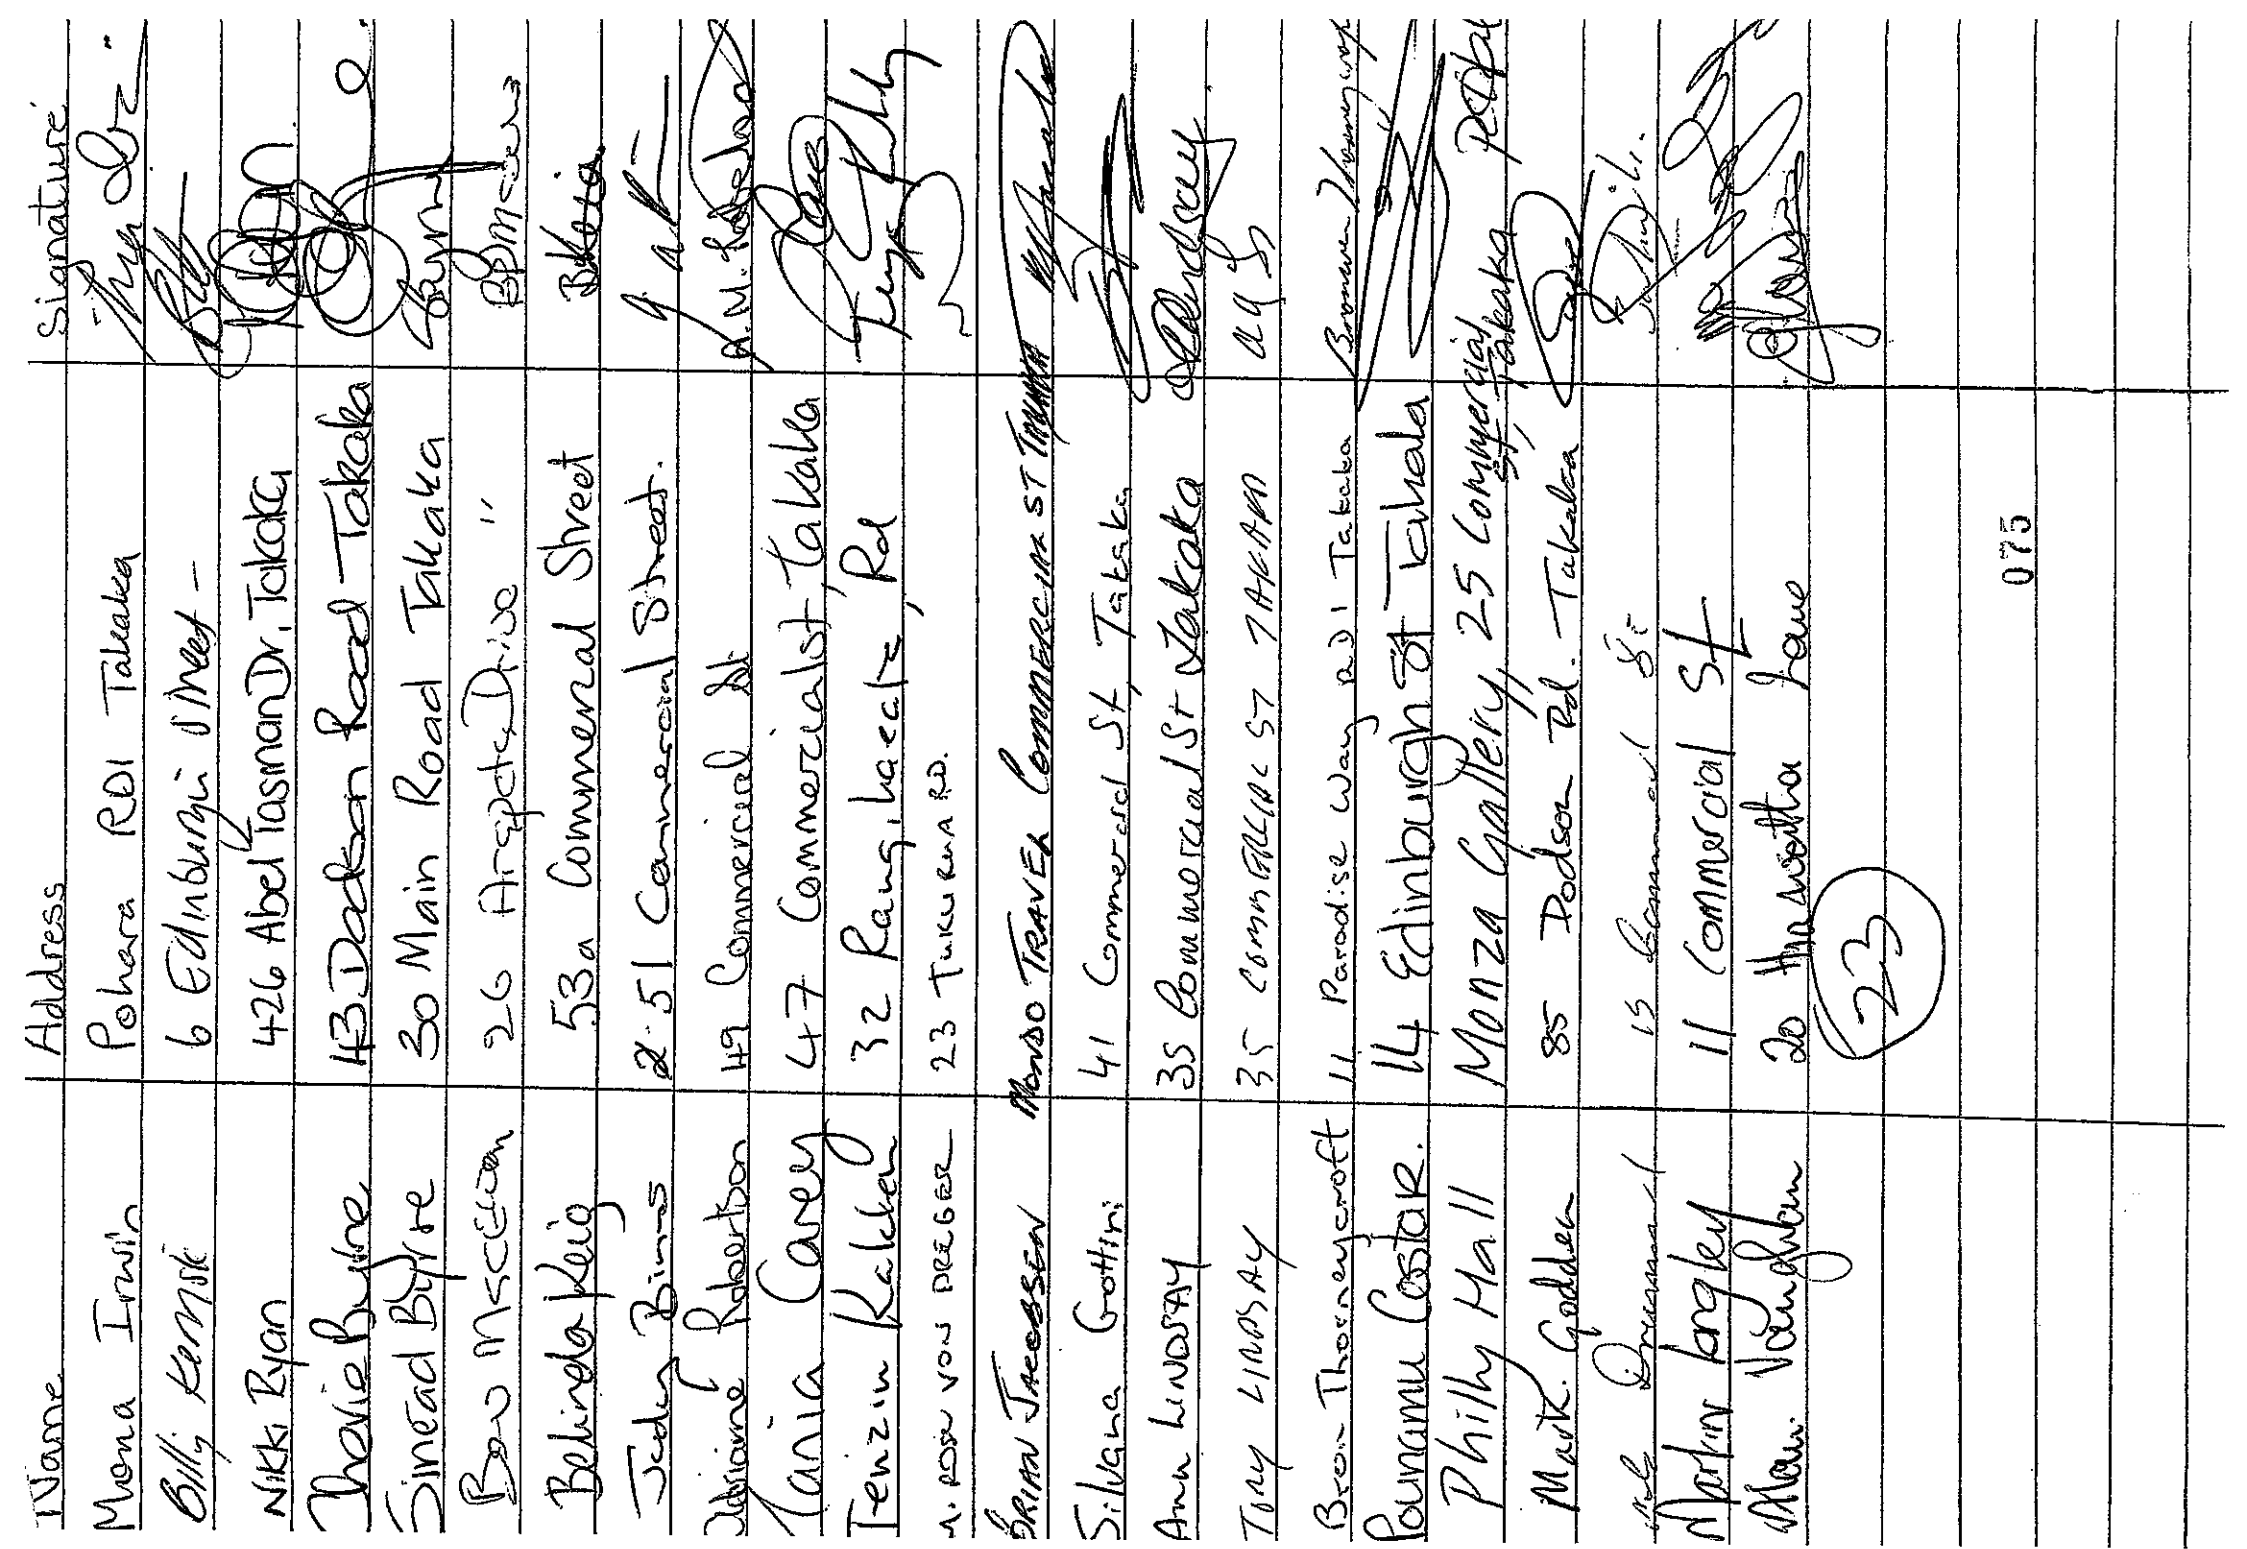 Name Address Signature
Mona Irwin Pohara RD1 Takaka
Billy Kemsik 6 Edinburgh Street -
Nikki Ryan 426 Abel Tasman Dr. Takaka
Byrne 43 Dodson Road Takaka
Sinead Byrne 30 Main Road Takaka
Bew MacEwan 26 Drive "
Belinda Keig 53a Commercial Street BKeig
Jody Binns 51 Commercial Street.
Adriane Robertson 49 Commercial St A.M. Robertson
Tania Carey 47 Commercial st, Takaka
Tenzin Kakkeh 32 Rangihaeata Rd
M. ROSIN VON DREGER 23 TUKURUA RD.
BRIAN JACOBSEN MONDO TRAVEL COMMERCIAL ST TAKAKA
Silvana Gottini 41 Commercial St, Takaka
Ann LINDSAY 35 Commercial St Takaka Lindsay
TONY LINDSAY 35 COMMERCIAL ST TAKAKA
Bron Thorneycroft 11 Paradise Way RD1 Takaka Bronwen Thorneycroft
Pounamu Costar. 14 Edinburgh St Takaka
Philly Hall Monza Gallery, 25 Commercial St, Takaka Takaka PHall
Mark. Godden 85 Dodson Rd. Takaka
15 Commercial St
Martin Langley 11 Commercial St
Vaughan 20 Lane
23
075